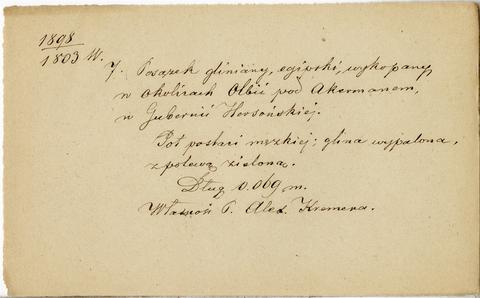 1898
1803 W.
7. Posążek gliniany, egipski, wykopany
w okolicach Olbii pod Akermanem,
w Gubernii Hersońskiej.
Pół postaci męzkiej; glina wypalona,
z polewą zieloną.
Dług. 0.069 m.
Własność P. Alex. Kremera.